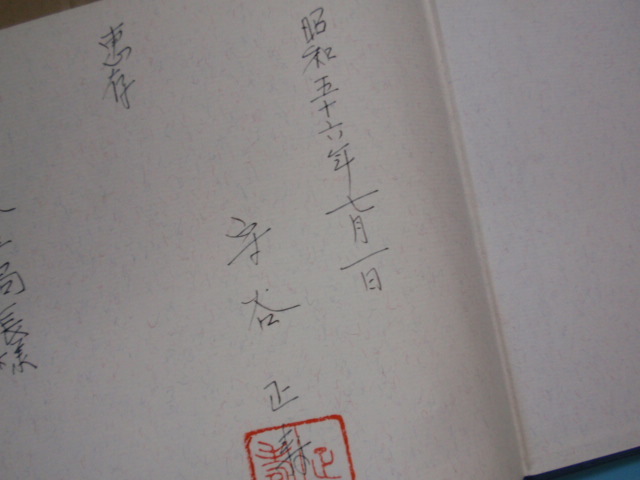 昭和五十六年七月一日
守谷正寿
恵存
局長様